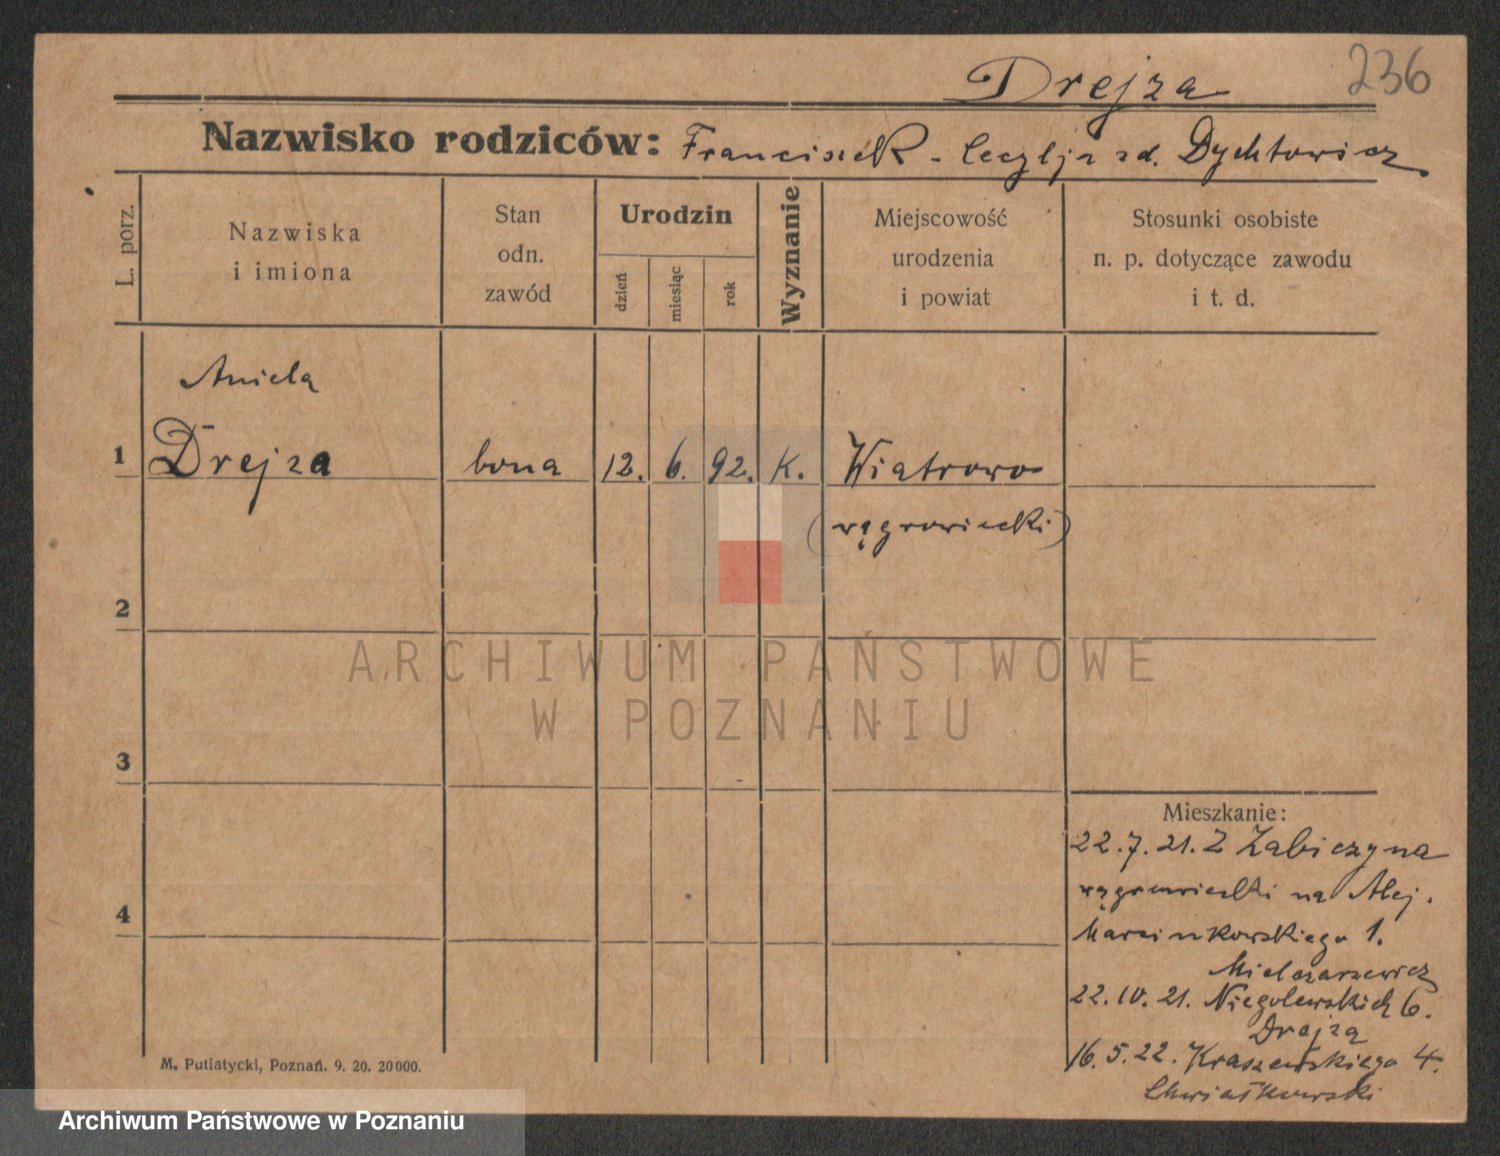 Drejza 236
Nazwisko rodziców: Franciszek - Cecylja zd. Dychtowicz
L. porz.
Nazwiska
i imiona
Stan
odn.
zawód
Urodzin
dzień
miesiąc
rok
Wyznanie
Miejscowość
urodzenia
i powiat
Stosunki osobiste
n. p. dotyczące zawodu
i t. d.
Aniela
1 Drejza bona 12. 6. 92. K. Wiatrowo
(wągrowiecki)
2
ARCHIWUM PAŃSTWOWE
W POZNANIU
3
4
Mieszkanie:
22.7.21. Z Żabiczyna
wągrowiecki na Alej.
Marcinkowskiego 1.
Mielcarzewicz
22.10.21. Niegolewskich 6.
Drejza
16.5.22. Kraszewskiego 4.
Chwiałkowski
M. Putiatycki, Poznań. 9. 20. 20000.
Archiwum Państwowe w Poznaniu